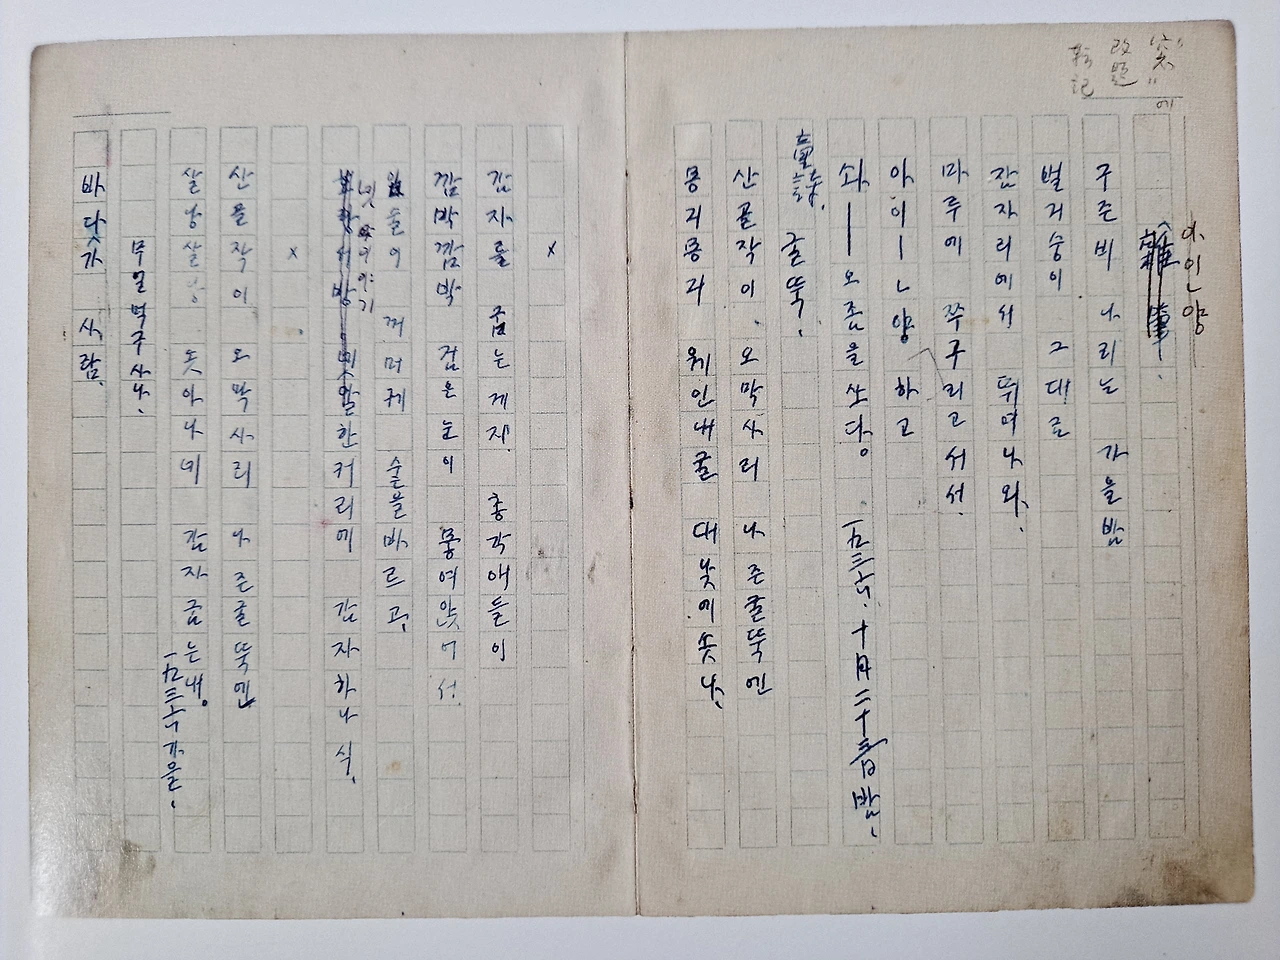 "窓"에
改題
転記
아인양
구준비 나리는 가을밤
벌거숭이 그대로
잠자리에서 뛰여나와.
마루에 쭈구리고서서
아이ㅡㄴ양 하고
솨ㅡㅡ 오좀을 쏘다。
一九三六、十月二十三日밤、
童謠. 굴뚝.
산골작이、오막사리 나즌굴뚝엔
몽긔몽긔 웨인내굴 대낮에솟나、
×
감자를 굽는게지 총각애들이
깜박깜박 검은눈이 뫃여앉어서.
입술이 꺼머케 숯을바르고,
넷이야기
한커리에 감자하나식.
×
산골작이 오막사리 나즌굴뚝엔
살낭살낭 솟아나네 감자굽는내。
一九三六가을.
무얼먹구사나.
바닷가 사람.